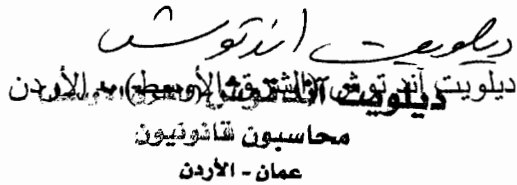 ديلويت اند توش
ديلويت آند توش (الشرق الأوسط) - الأردن
ديلويت آند توش (الشرق الأوسط)
محاسبون قانونيون
عمان - الأردن